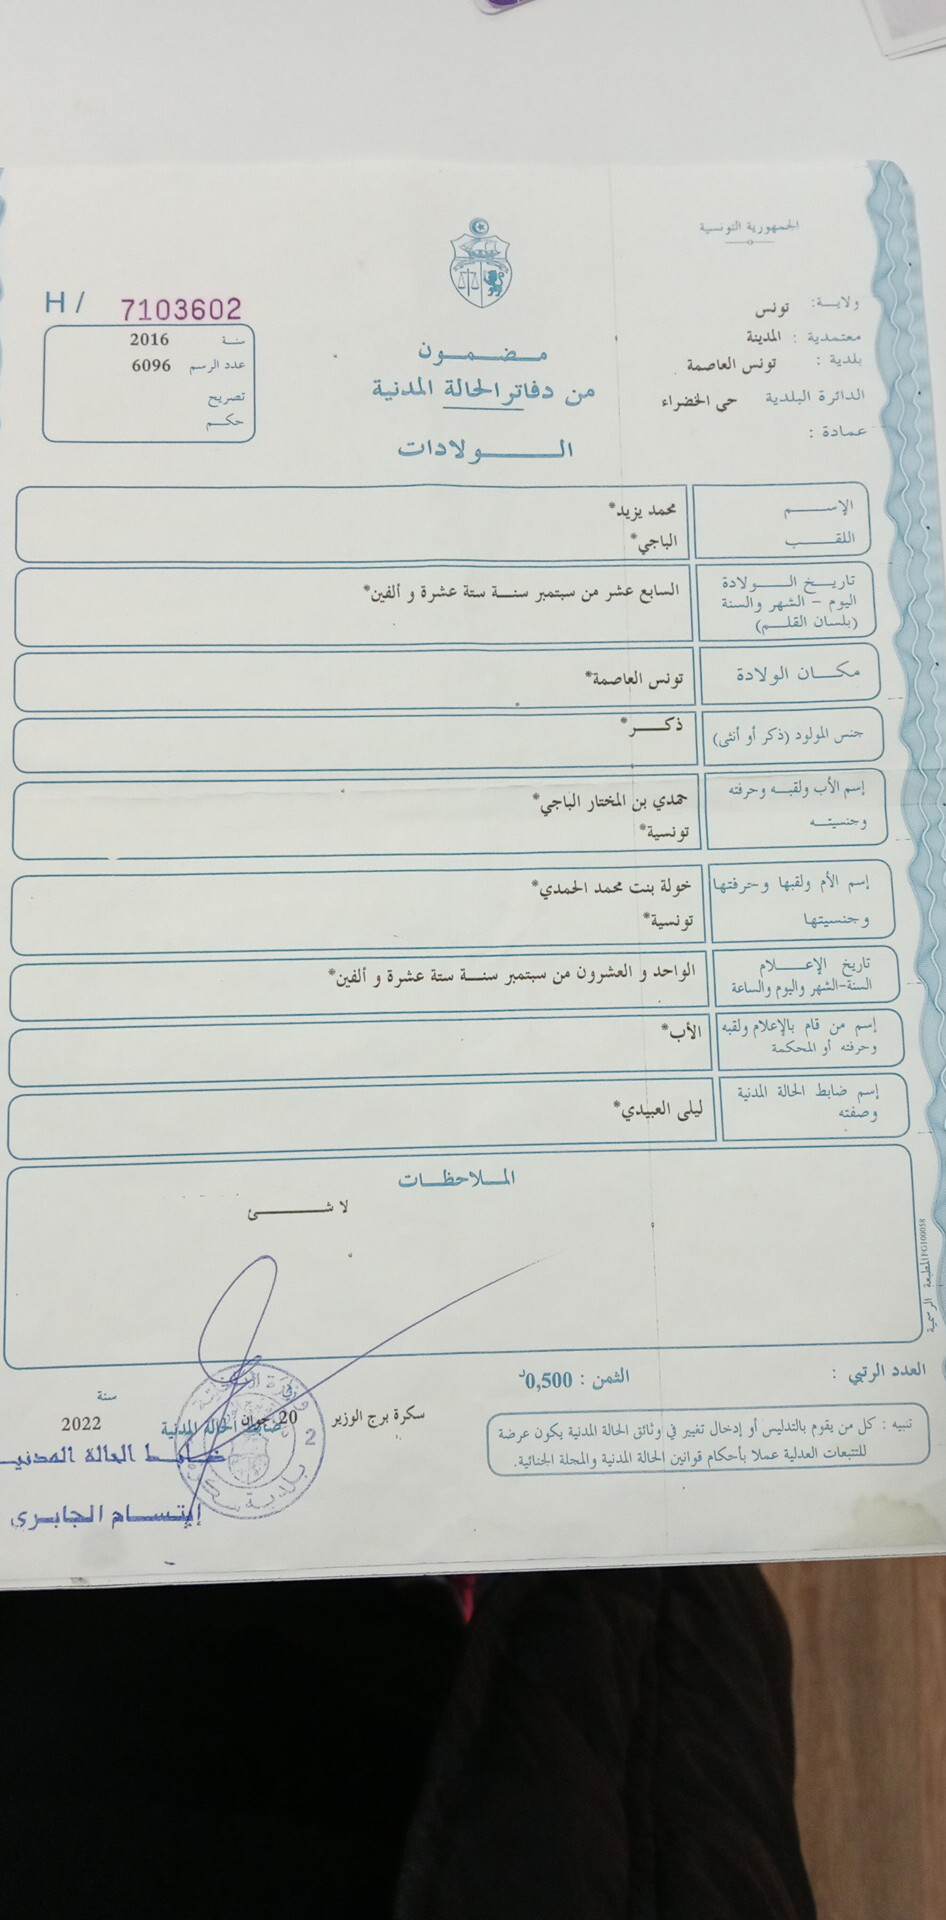 الجمهورية التونسية
ولايـــة: تونس
معتمدية : المدينة
بلدية : تونس العاصمة
الدائرة البلدية حي الخضراء
عمادة :
H / 7103602
سنة 2016
عدد الرسم 6096
تصريح
حكم
مضمون
من دفاتر الحالة المدنية
الولادات
الإسم محمد يزيد*
اللقب الباجي*
تاريخ الولادة
اليوم - الشهر والسنة
(بلسان القلم)
السابع عشر من سبتمبر سنة ستة عشرة و ألفين*
مكان الولادة تونس العاصمة*
جنس المولود (ذكر أو أنثى) ذكر*
إسم الأب ولقبه وحرفته حمدي بن المختار الباجي*
وجنسيته تونسية*
إسم الأم ولقبها وحرفتها خولة بنت محمد الحمدي*
وجنسيتها تونسية*
تاريخ الإعلام
السنة-الشهر واليوم والساعة
الواحد و العشرون من سبتمبر سنة ستة عشرة و ألفين*
إسم من قام بالإعلام ولقبه
وحرفته أو المحكمة
الأب*
إسم ضابط الحالة المدنية
وصفته
ليلى العبيدي*
الملاحظات
لا شئ
العدد الرتبي :
الثمن : 0,500د
تنبيه : كل من يقوم بالتدليس أو إدخال تغيير في وثائق الحالة المدنية يكون عرضة
للتتبعات العدلية عملا بأحكام قوانين الحالة المدنية والمجلة الجنائية.
سكرة برج الوزير في 20 جوان سنة 2022
ضابط الحالة المدنية
ضابط الحالة المدنية
إبتسام الجابري
2
المطبعة الرسمية